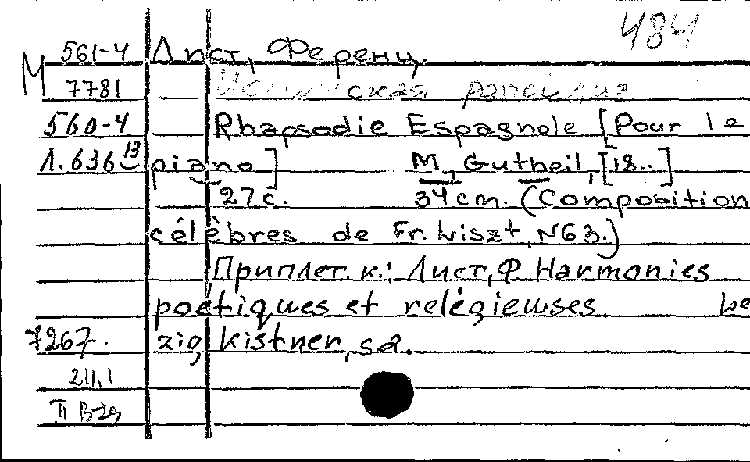 484
561-4 Лист, Ференц.
М
7781 рапсодия
560-4 Rhapsodie Espagnole [Pour le
Л. 636 13 piano] M., Gutheil, [18..]
27с. 34cm. (Composition
célèbres de Fr. Liszt, N63.)
Приплет. к.: Лист, Ф. Harmonies
poétiques et relégieuses.
7267. zig, Kistner, s.a.